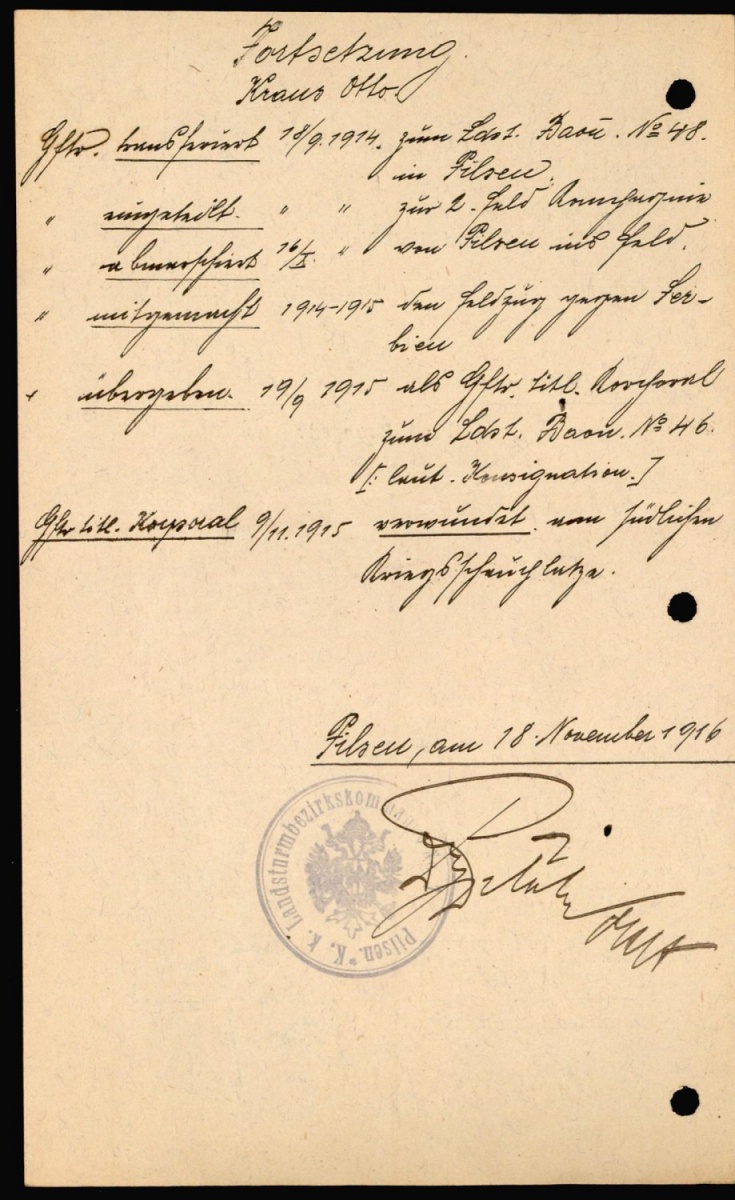 Fortsetzung.
Kraus Otto.
Gftr. transferiert 18/9. 1914. zum Ldst. Baon. No 48.
in Pilsen.
" eingeteilt. " " zur 2. Feld Kompagnie
" abmarschiert 16/X. " von Pilsen ins Feld.
" mitgemacht 1914-1915 den Feldzug gegen Ser-
bien
" übergeben. 19/9 1915 als Gftr. titl. Korporal
zum Ldst. Baon. No 46.
[: laut. Konsignation.]
Gftr titl. Korporal 9/11. 1915 verwundet am südlichen
Kriegsschauplatze.
Pilsen, am 18. November 1916
K. k. Landsturmbezirkskomman
Pilsen.